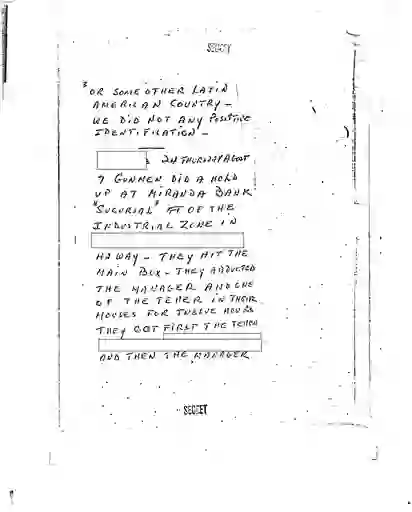 SECRET
OR SOME OTHER LATIN
AMERICAN COUNTRY -
WE DID NOT ANY POSITIVE
IDENTIFICATION -
2N THURSDAY AGOST
7 GUNMEN DID A HOLD
UP AT MIRANDA BANK
"SUCURSAL" OF THE
INDUSTRIAL ZONE IN
HAWAY - THEY HIT THE
MAIN BOX - THEY ABDUCTED
THE MANAGER AND ONE
OF THE TELLER IN THEIR
HOUSES FOR TWELVE HOURS
THEY GOT FIRST THE
AND THEN THE MANAGER
SECRET